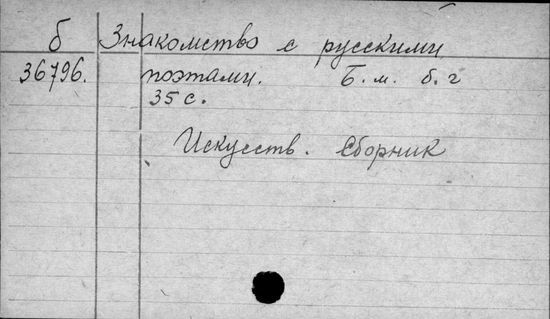 б Знакомство с русскими
36796. поэтами. Б. м. б. г
35 с.
Искусств. Сборник